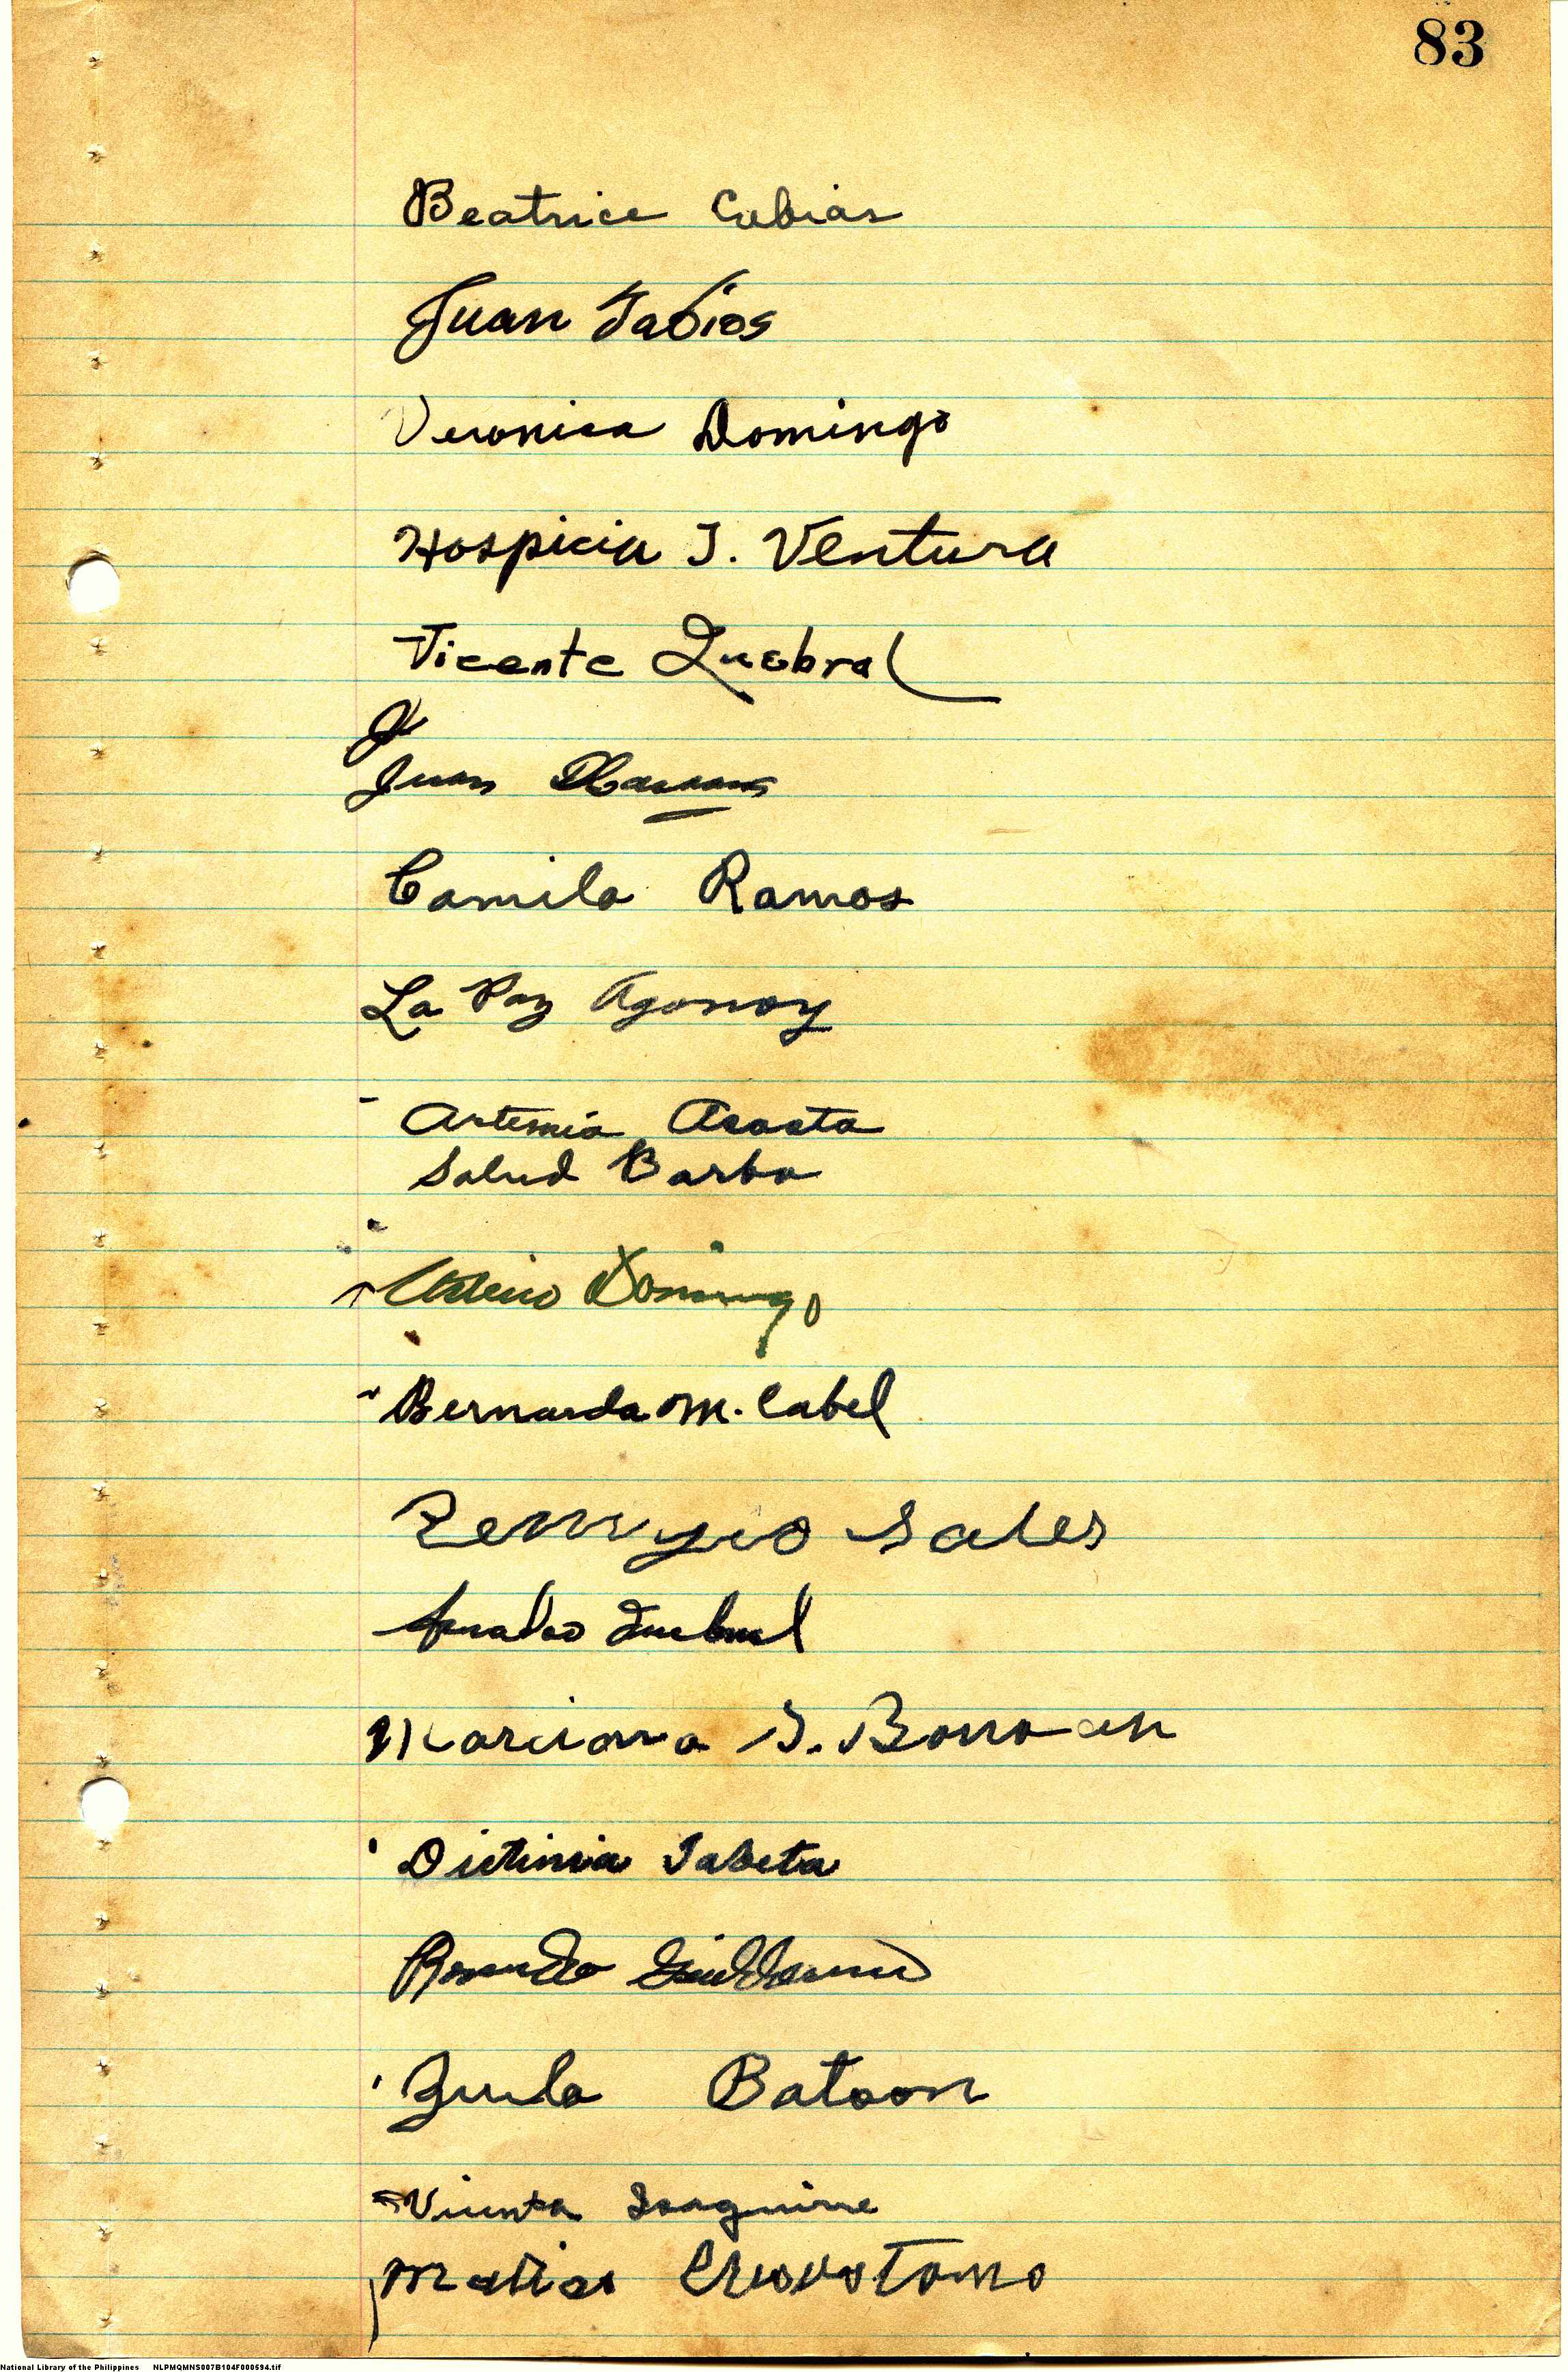 83
Beatrice Cabias
Juan Tabios
Veronica Domingo
Hospicia T. Ventura
Vicente Quebral
Juan
Camila Ramos
La Paz Agonoy
Artemia Acosta
Salud Barba
Domingo
Bernarda M. Cabel
Remigio Sales
Amadeo Quebral
Marciana S. Bonoan
Dictinia Tabeta
Rosendo Guillermo
Zuila Batoon
Vicenta Isaguirre
Matias Crisostomo
National Library of the Philippines NLPMQMNS007B104F000594.tif